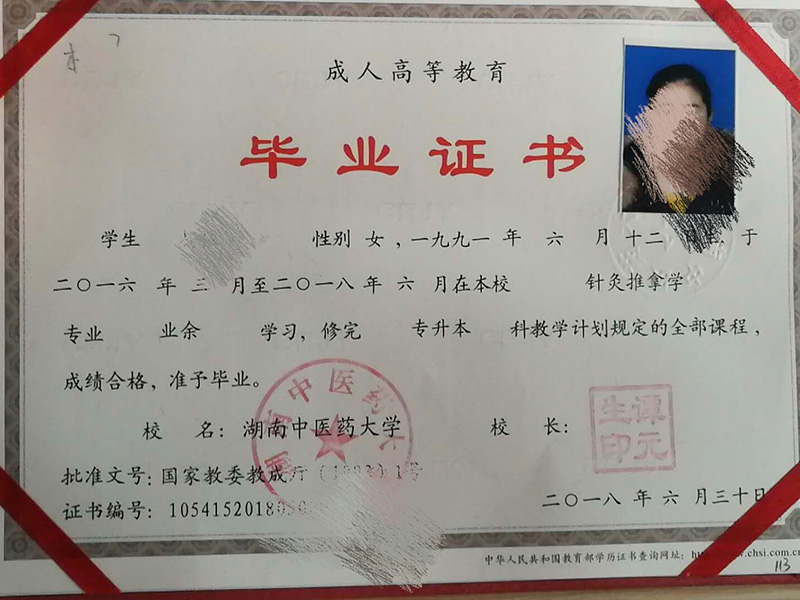 成人高等教育
毕业证书
学生 性别 女，一九九一 年 六 月 十二 于
二〇一六 年 三 月至二〇一八 年 六 月在本校 针灸推拿学
专业 业余 学习，修完 专升本 科教学计划规定的全部课程，
成绩合格，准予毕业。
校 名：湖南中医药大学 校 长：
生谭
印元
批准文号：国家教委教成厅 1号
证书编号：105415201805
二〇一八 年 六 月三十日
中华人民共和国教育部学历证书查询网址：
113